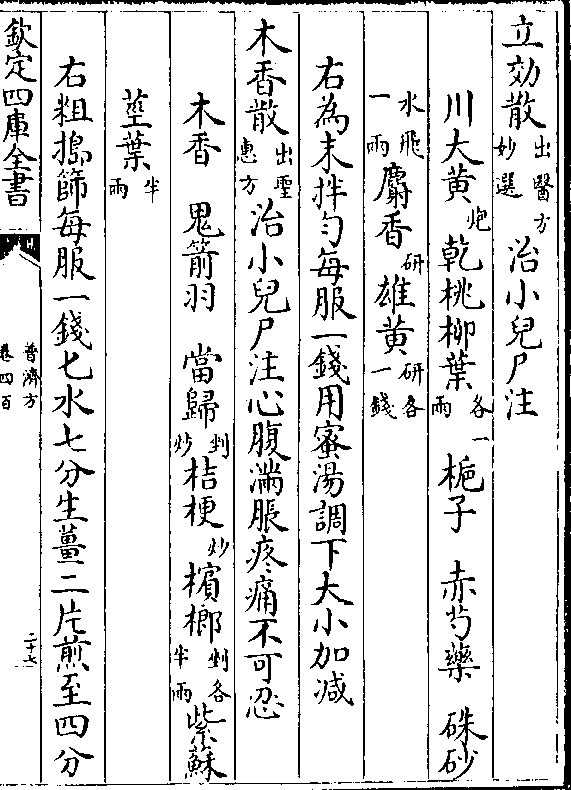 立効散出醫方妙選治小兒尸注
川大黄炮乾桃柳葉各一兩梔子赤芍藥硃砂
水飛一兩麝香研雄黄研各一錢
右為末拌勻每服一錢用蜜湯調下大小加减
木香散出聖惠方治小兒尸注心腹滿脹疼痛不可忍
木香鬼箭羽當歸剉炒桔梗炒檳榔剉各半兩紫蘇
莖葉半兩
右粗搗篩每服一錢匕水七分生薑二片煎至四分
欽定四庫全書
普濟方
卷四百
二十七